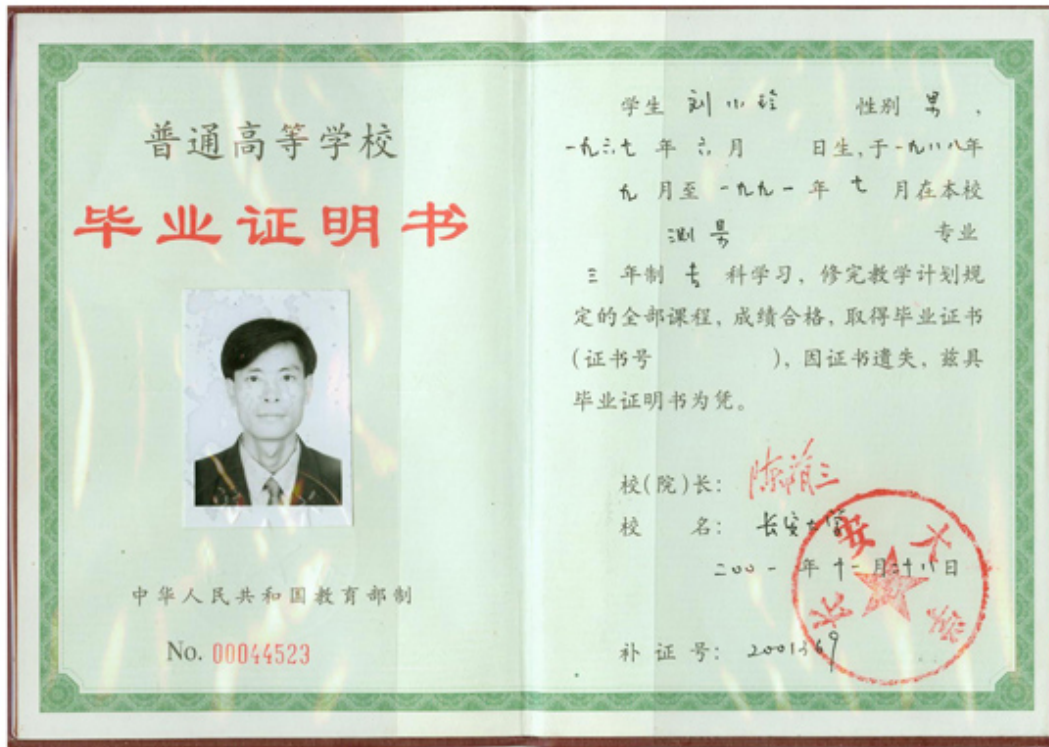 普通高等学校
毕业证明书
中华人民共和国教育部制
No. 00044523
学生 刘小 性别 男、
一九六七 年 六 月 日生,于一九八八年
九 月至 一九九一 年 七 月在本校
测量 专业
三 年制 专 科学习,修完教学计划规
定的全部课程,成绩合格,取得毕业证书
(证书号 ),因证书遗失,兹具
毕业证明书为凭。
校(院)长:
校 名: 长安大学
二00一 年 十一 月 二十八日
补 证 号: 2001369
长安大学